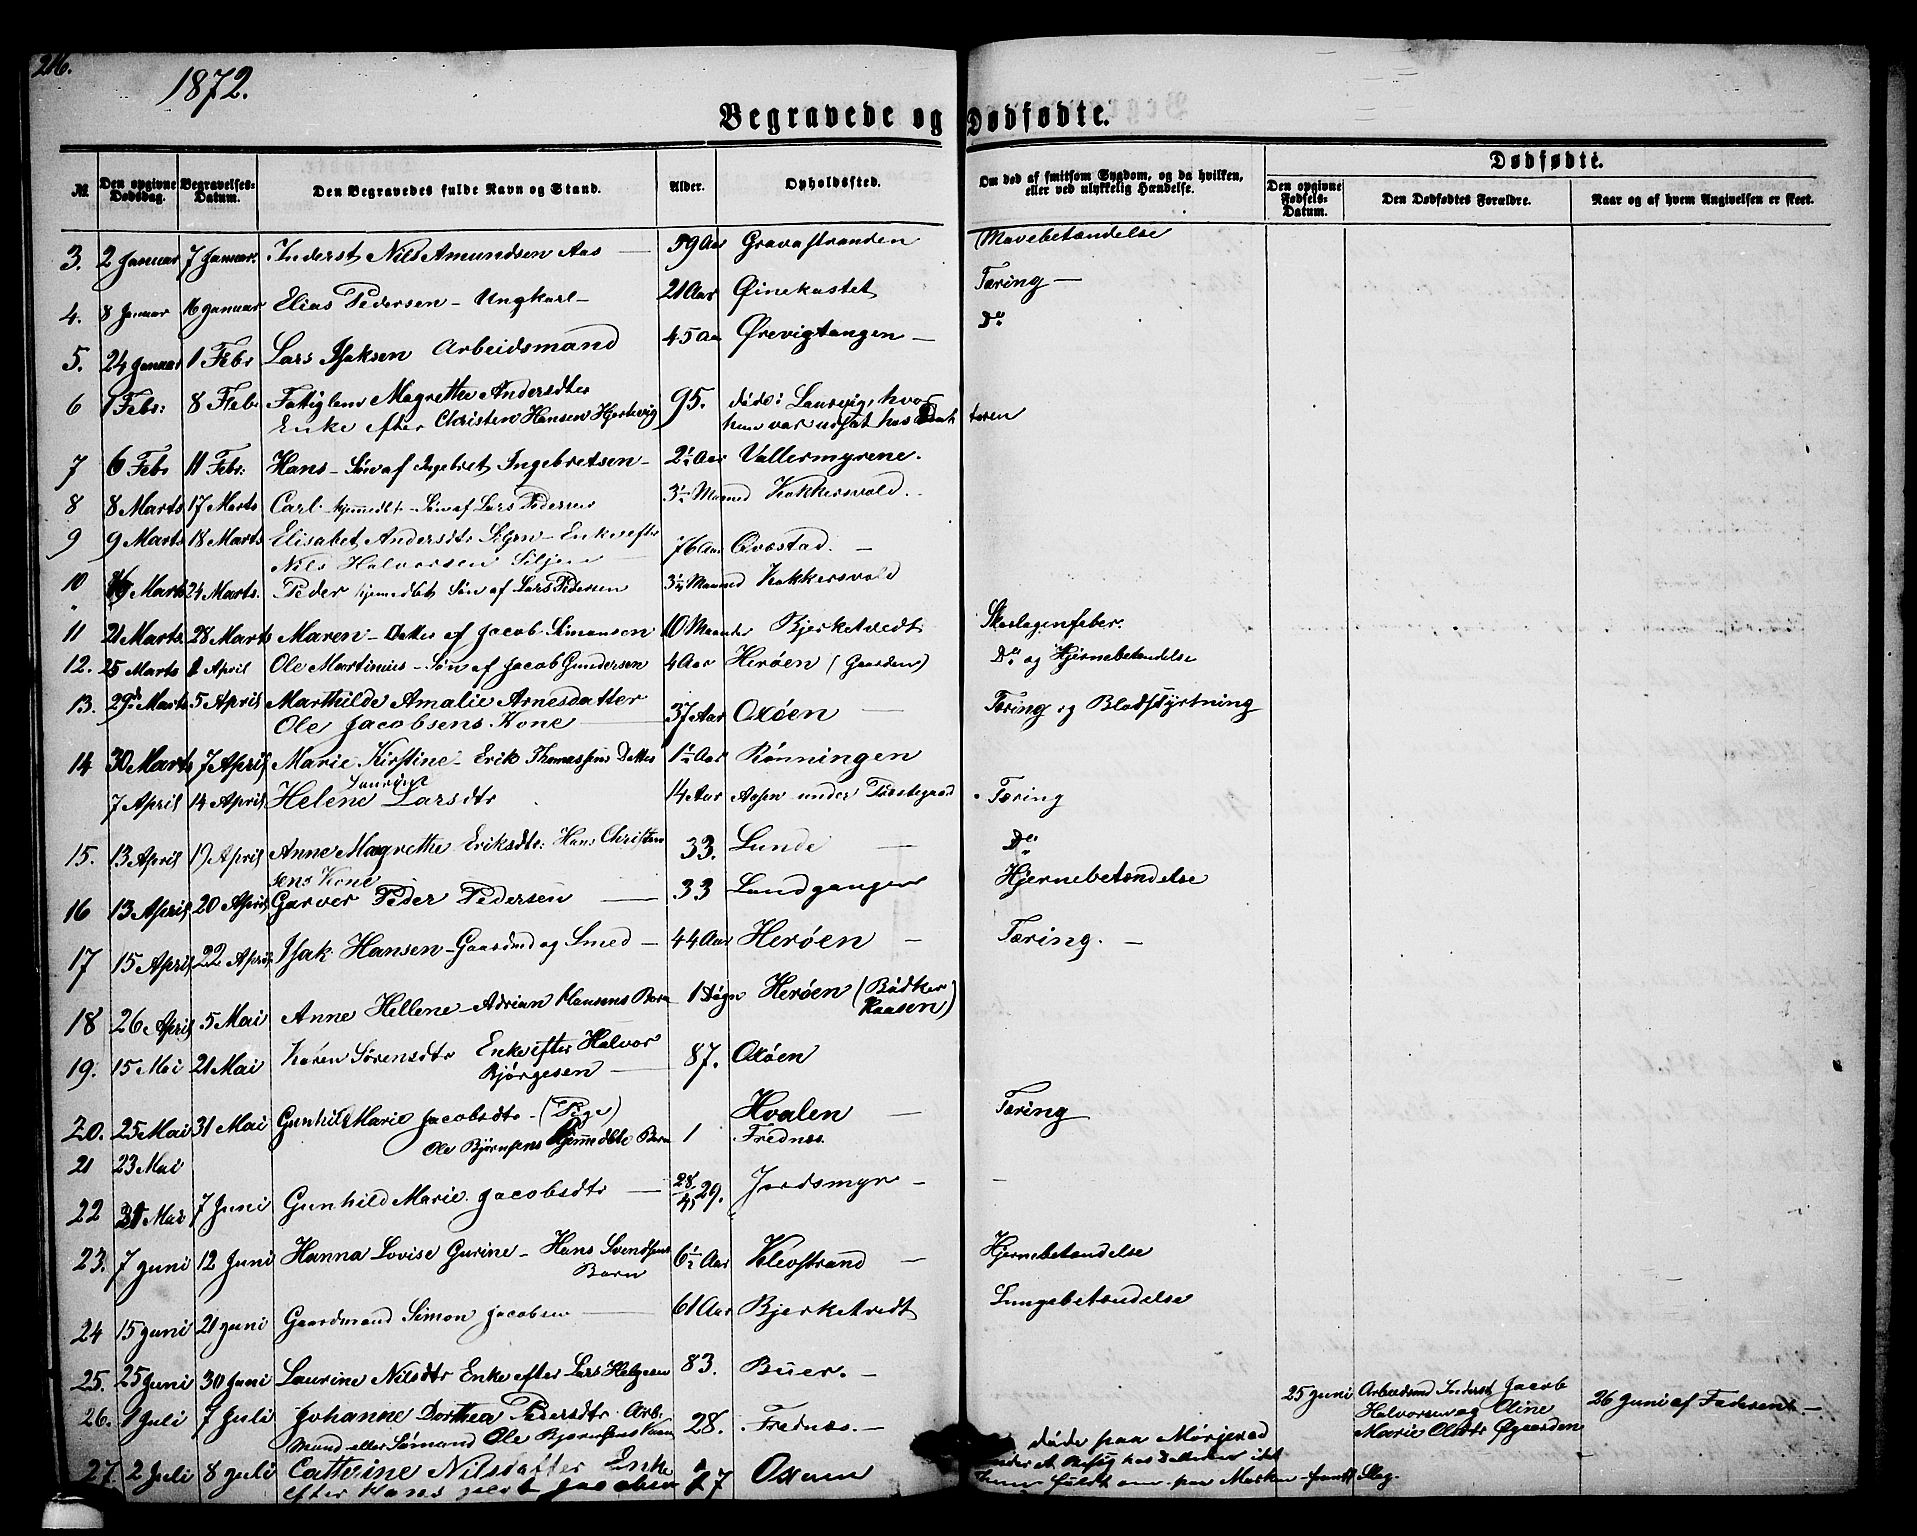 216.
1872.
Begravede og Dødfødte.
Dødfødte.
№
Den opgivne Dødsdag.
Begravelses-Datum.
Den Begravedes fulde Navn og Stand.
Alder.
Opholdssted.
Om død af smitsom Sygdom, og da hvilken, eller ved ulykkelig Hændelse.
Den opgivne Fødsels-Datum.
Den Dødfødtes Forældre.
Naar og af hvem Angivelsen er skeet.
3. 2 Januar 7 Januar. Inderst Nils Amundsen Aas — 59 Aar Gravastranden Mavebetændelse
4. 8 Januar 16 Januar Elias Pedersen - Ungkarl - 21 Aar Øinekastet Tæring —
5. 24 Januar 1 Febr Lars Isaksen Arbeidsmand 45 Aar Ørevigtangen — Do
6 1 Febr: 8 Feb. Fattiglem Magrethe Andersdtr 95. døde i Laurvig, hvor
Enke efter Christen Hansen Hertvig hun var udsat hos Datteren
7 6 Febr 11 Febr: Hans - Søn af Ingebret Ingebretsen - 2½ Aar Vallermyrene.
8 8 Marts 17 Marts Carl - hjemmedbt - Søn af Lars Pedersen 3½ Maaned Kokkersvold.
9 9 Marts 18 Marts Elisabet Andersdtr - Enke efter
Nils Halvorsen Siljen 76 Aar Qvæstad. —
10 19 Marts 24 Marts. Peder hjemmedbt Søn af Lars Pedersen 3½ Maaned Kokkersvold
11 21 Marts 28 Marts Maren - Datter af Jacob Simonsen 10 Maaneder Bjerketvedt Skarlagensfeber.
12. 25 Marts 2 April Ole Martinius - Søn af Jacob Gundersen 4 Aar Herøen (Gaarden) Do og Hjernebetændelse
13. 29 Marts 5 April Marthilde Amalie Arnesdatter
Ole Jacobsens Kone — 37 Aar Oxøen — Tæring og Blodstyrtning
14 30 Marts 7 April Marie Kirstine - Erik Thomassens Datter 1½ Aar Rønningen
7 April 14 April Helene Laurine Larsdtr 14 Aar Aasen under Tvedtegaard Tæring
15. 13 April 19 April Anne Magrethe Eriksdtr: Hans Christen
sens Kone 33. Lunde — Do
16 13 April 20 April Garver Peder Pedersen — 33 Landgangen Hjernebetændelse
17 15 April 22 April Isak Hansen - Gaardmd og Smed — 44 Aar Herøen — Tæring. —
18 26 April 5 Mai Anne Hellene - Adrian Hansens Barn 1 Døgn Herøen (Bødker
Haasen)
19. 15 Mai 21 Mai Karen Sørensdtr Enke efter Halvor
Bjørgesen — 87. Oxøen
20. 25 Mai 31 Mai Gunhild Marie Jacobsdtr - (Pige) Hvalen — Tæring
21 23 Mai Ole Bjørnsens hjemmedbte Barn 1 Frednæs.
22 31 Mai 7 Juni Gunhild Marie Jacobsdtr — 28/45 29. Jordsmyr —
23. 7 Juni 12 Juni Hanna Lovise Gurine - Hans Svendsens
Barn 6½ Aar Klevstrand — Hjernebetændelse
24 15 Juni 21 Juni Gaardmand Simon Jacobsen — 61 Aar Bjerketvedt Lungebetændelse
25. 25 Juni 30 Juni Laurine Nilsdtr Enke efter Lars Helgesen 83. Buer. —
25 Juni Arbeidsmd Inderst Jacob
Halvorsen og Oline
Marie Olsdtr Øgaarden
26 Juni af Faderen —
26. 1 Juli 7 Juli Johanne Dorthea Pedersdtr. Arb.
Mand eller Sømand Ole Bjørnsens Kone 28. Frednæs. —
27. 2 Juli 8 Juli Catterine Nilsdatter Enke
efter Hans Jacobsen 77 Oxøen
døde paa Mørjerød
under et Besøg hos
hun faldt om paa Marken - Slag.